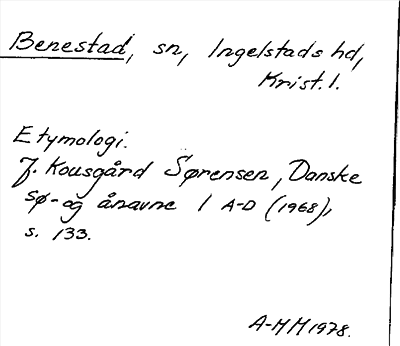 Benestad, sn, Ingelstads hd,
Krist. l.
Etymologi.
J. Kousgård Sørensen, Danske
sø- og ånavne 1 A-D (1968),
s. 133.
A-MM 1978.